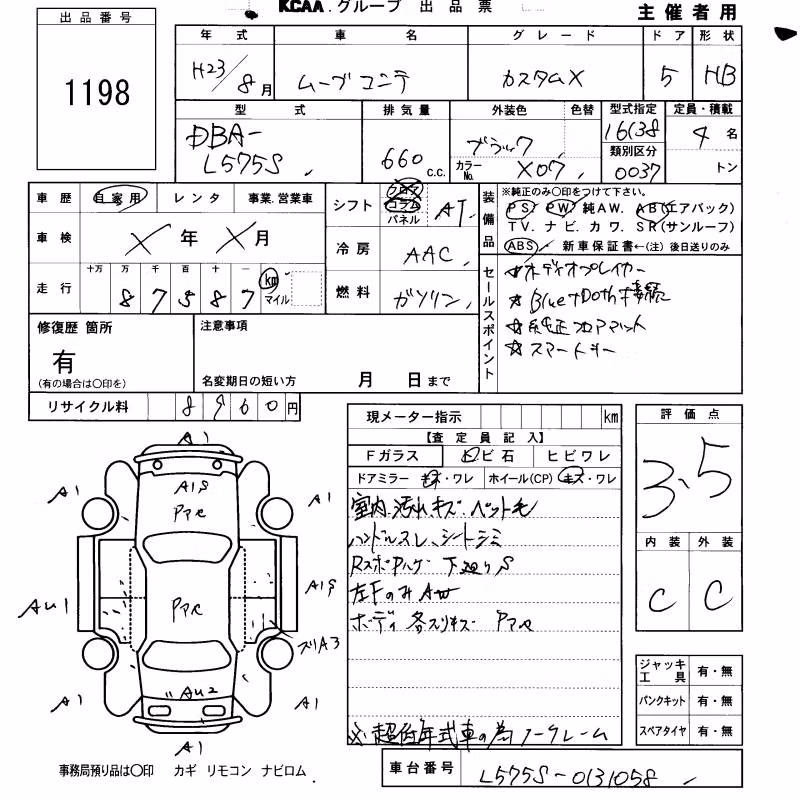 KCAA.グループ 出品票
主催者用
出品番号
1198
年式 車名 グレード ドア 形状
H23/8月 ムーブコンテ カスタムX 5 HB
型式 排気量 外装色 色替 型式指定 定員・積載
DBA-
L575S 660 c.c. ブラック 16138 4名
類別区分
カラーNo. X07 0037 トン
車歴 自家用 レンタ 事業.営業車
シフト フロア コラム パネル AT
装備品
※純正のみ○印をつけて下さい。
PS PW 純AW. AB(エアバック)
TV. ナビ. カワ. SR(サンルーフ)
ABS 新車保証書←(注) 後日送りのみ
車検 X年X月
冷房 AAC
走行 十万 万 千 百 十 一
87587 km マイル
燃料 ガソリン
セールスポイント
☆オーディオプレイヤー
☆Bluetooth接続
☆純正フロアマット
☆スマートキー
修復歴 箇所
有
(有の場合は○印を)
注意事項
名変期日の短い方 月 日まで
リサイクル料 8960円
現メーター指示 km
【査定員記入】
Fガラス 飛び石 ヒビワレ
ドアミラー キズ・ワレ ホイール(CP) キズ・ワレ
室内.汚れ.キズ ペット毛
ハンドルスレ、シートシミ
下廻りS
左FのみAW
ボディ各スリキズ PアP
※超低年式車の為ノークレーム
評価点
3.5
内装 外装
C C
ジャッキ工具 有・無
パンクキット 有・無
スペアタイヤ 有・無
A1
A1S
A1 A1
A1S
AU1
ズリA3
AU2
A1 A1
A1
事務局預り品は○印 カギ リモコン ナビロム.
車台番号 L575S-0131058